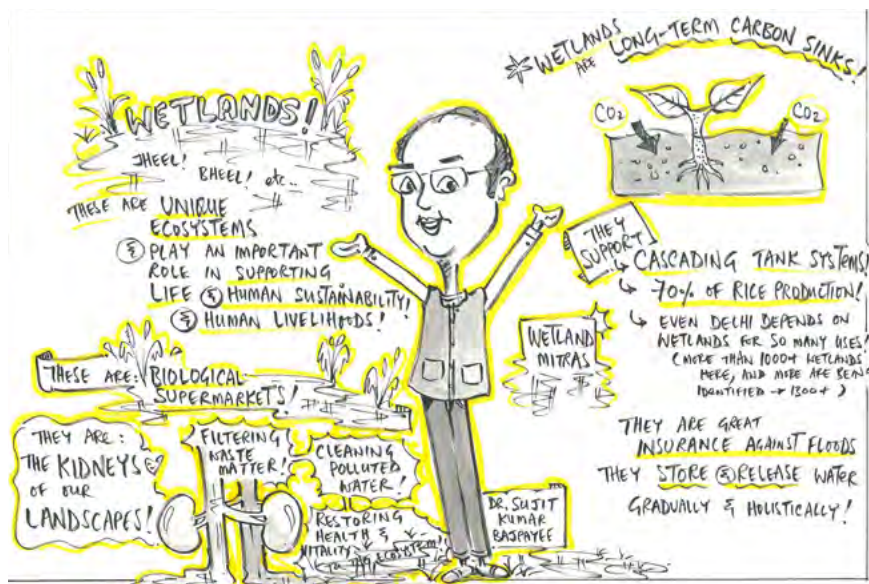 WETLANDS!
JHEEL!
BHEEL! etc..
THESE ARE UNIQUE
ECOSYSTEMS
& PLAY AN IMPORTANT
ROLE IN SUPPORTING
LIFE & HUMAN SUSTAINABILITY!
& HUMAN LIVELIHOODS!
THESE ARE: BIOLOGICAL
SUPERMARKETS!
THEY ARE:
THE KIDNEYS
OF OUR
LANDSCAPES!
FILTERING
WASTE
MATTER!
CLEANING
POLLUTED
WATER!
RESTORING
HEALTH &
VITALITY
TO THE ECOSYSTEM!
DR. SUJIT
KUMAR
BAJPAYEE
WETLAND
MITRAS
* WETLANDS
ARE LONG-TERM CARBON SINKS!
CO2
CO2
THEY
SUPPORT
CASCADING TANK SYSTEMS!
70% OF RICE PRODUCTION!
EVEN DELHI DEPENDS ON
WETLANDS FOR SO MANY USES!
(MORE THAN 1000+ WETLANDS
HERE, AND MORE ARE BEING
IDENTIFIED → 1300+)
THEY ARE GREAT
INSURANCE AGAINST FLOODS
THEY STORE & RELEASE WATER
GRADUALLY & HOLISTICALLY!